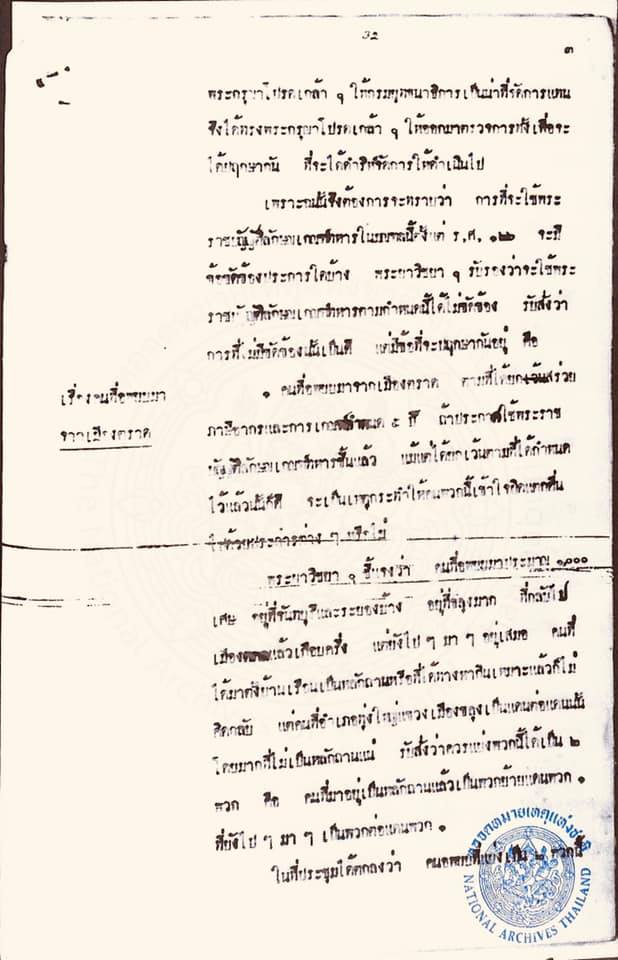 32
๓
พระกรุณาโปรดเกล้า ฯ ให้กรมยุทธนาธิการเป็นน่าที่จัดการแทน
จึงได้ทรงพระกรุณาโปรดเกล้า ฯ ให้ออกมาตรวจการทั้งเพื่อจะ
ได้ปฤกษากัน ที่จะได้ดำริห์จัดการให้ดำเนินไป
เพราะฉนั้นจึงต้องการจะทราบว่า การที่จะใช้พระ
ราชบัญญัติลักษณเกณฑ์ทหารในมณฑลนี้ตั้งแต่ ร.ศ. ๑๒๖ จะมี
ข้อขัดข้องประการใดบ้าง พระยาวิชยา ฯ รับรองว่าจะใช้พระ
ราชบัญญัติลักษณเกณฑ์ทหารตามกำหนดนี้ได้ไม่ขัดข้อง รับสั่งว่า
การที่ไม่มีขัดข้องนั้นเป็นดี แต่มีข้อที่จะปฤกษากันอยู่ คือ
เรื่องคนที่อพยบมา
จากเมืองตราด
๑ คนที่อพยบมาจากเมืองตราด ตามที่ได้ยกเว้นส่วย
ภาษีอากรและการเกณฑ์กำหนด ๕ ปี ถ้าประกาศใช้พระราช
บัญญัติลักษณเกณฑ์ทหารขึ้นแล้ว แม้แต่ได้ยกเว้นตามที่ได้กำหนด
ไว้แล้วนั้นก็ดี จะเป็นเหตุกระทำให้คนพวกนี้เข้าใจผิดแตกตื่น
ไปด้วยประการต่าง ๆ หรือไม่
พระยาวิชยา ฯ ชี้แจงว่า คนที่อพยบมาประมาณ ๑,๐๐๐
เศษ อยู่ที่จันทบุรีและระยองบ้าง อยู่ที่ขลุงมาก ที่กลับไป
เมืองตราดแล้วเกือบครึ่ง แต่ยังไป ๆ มา ๆ อยู่เสมอ คนที่
ได้มาตั้งบ้านเรือนเป็นหลักถานหรือที่ได้ทางหากินเหมาะแล้วก็ไม่
คิดกลับ แต่คนที่อำเภอทุ่งใหญ่แขวงเมืองขลุงเป็นแดนต่อแดนนั้น
โดยมากที่ไม่เป็นหลักถานแน่ รับสั่งว่าควรแบ่งพวกนี้ได้เป็น ๒
พวก คือ คนที่มาอยู่เป็นหลักถานแล้วเป็นพวกย้ายแดนพวก ๑
ที่ยังไป ๆ มา ๆ เป็นพวกต่อแดนพวก ๑
ในที่ประชุมได้ตกลงว่า คนอพยบที่แบ่งเป็น ๒ พวกนี้
หอจดหมายเหตุแห่งชาติ
NATIONAL ARCHIVES THAILAND